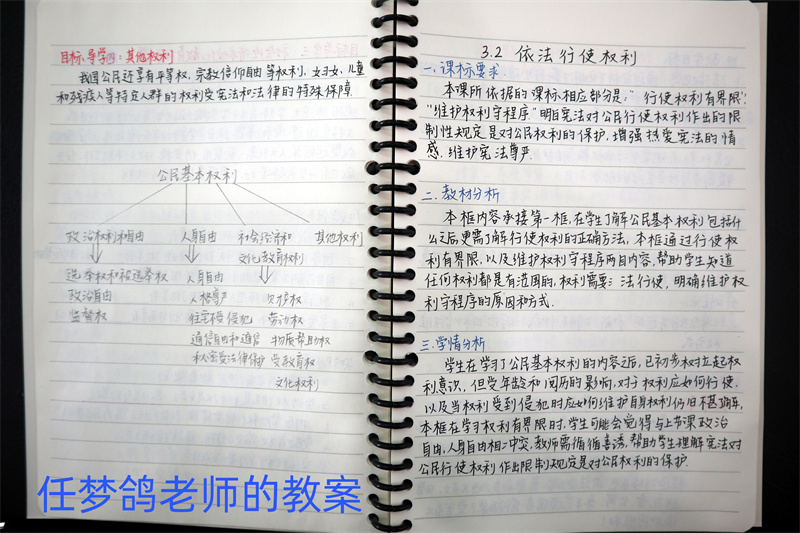 目标导学四：其他权利
我国公民还享有平等权、宗教信仰自由等权利，妇女、儿童
和残疾人等特定人群的权利受宪法和法律的特殊保障.
公民基本权利
政治权利和自由 人身自由 社会经济和 其他权利
文化教育权利
选举权和被选举权 人身自由
政治自由 人格尊严 财产权
监督权 住宅不受侵犯 劳动权
通信自由和通信 物质帮助权
秘密受法律保护 受教育权
文化权利
任梦鸽老师的教案
3.2 依法行使权利
一、课标要求
本课所依据的课标相应部分是：“行使权利有界限”；
“维护权利守程序”明白宪法对公民行使权利作出的限
制性规定是对公民权利的保护，增强热爱宪法的情
感，维护宪法尊严
二、教材分析
本框内容承接第一框，在学生了解公民基本权利包括什
么之后更需了解行使权利的正确方法，本框通过行使权
利有界限，以及维护权利守程序两目内容，帮助学生知道
任何权利都是有范围的，权利需要 法行使，明确维护权
利守程序的原因和方式.
三、学情分析
学生在学习了公民基本权利的内容之后，已初步树立起权
利意识，但受年龄和阅历的影响，对于权利应如何行使，
以及当权利受到侵犯时应如何维护自身权利仍旧不甚确车，
本框在学习权利有界限时，学生可能会觉得与上节课政治
自由，人身自由相冲突，教师需循循善诱，帮助学生理解宪法对
公民行使权利作出限制规定是对公民权利的保护.